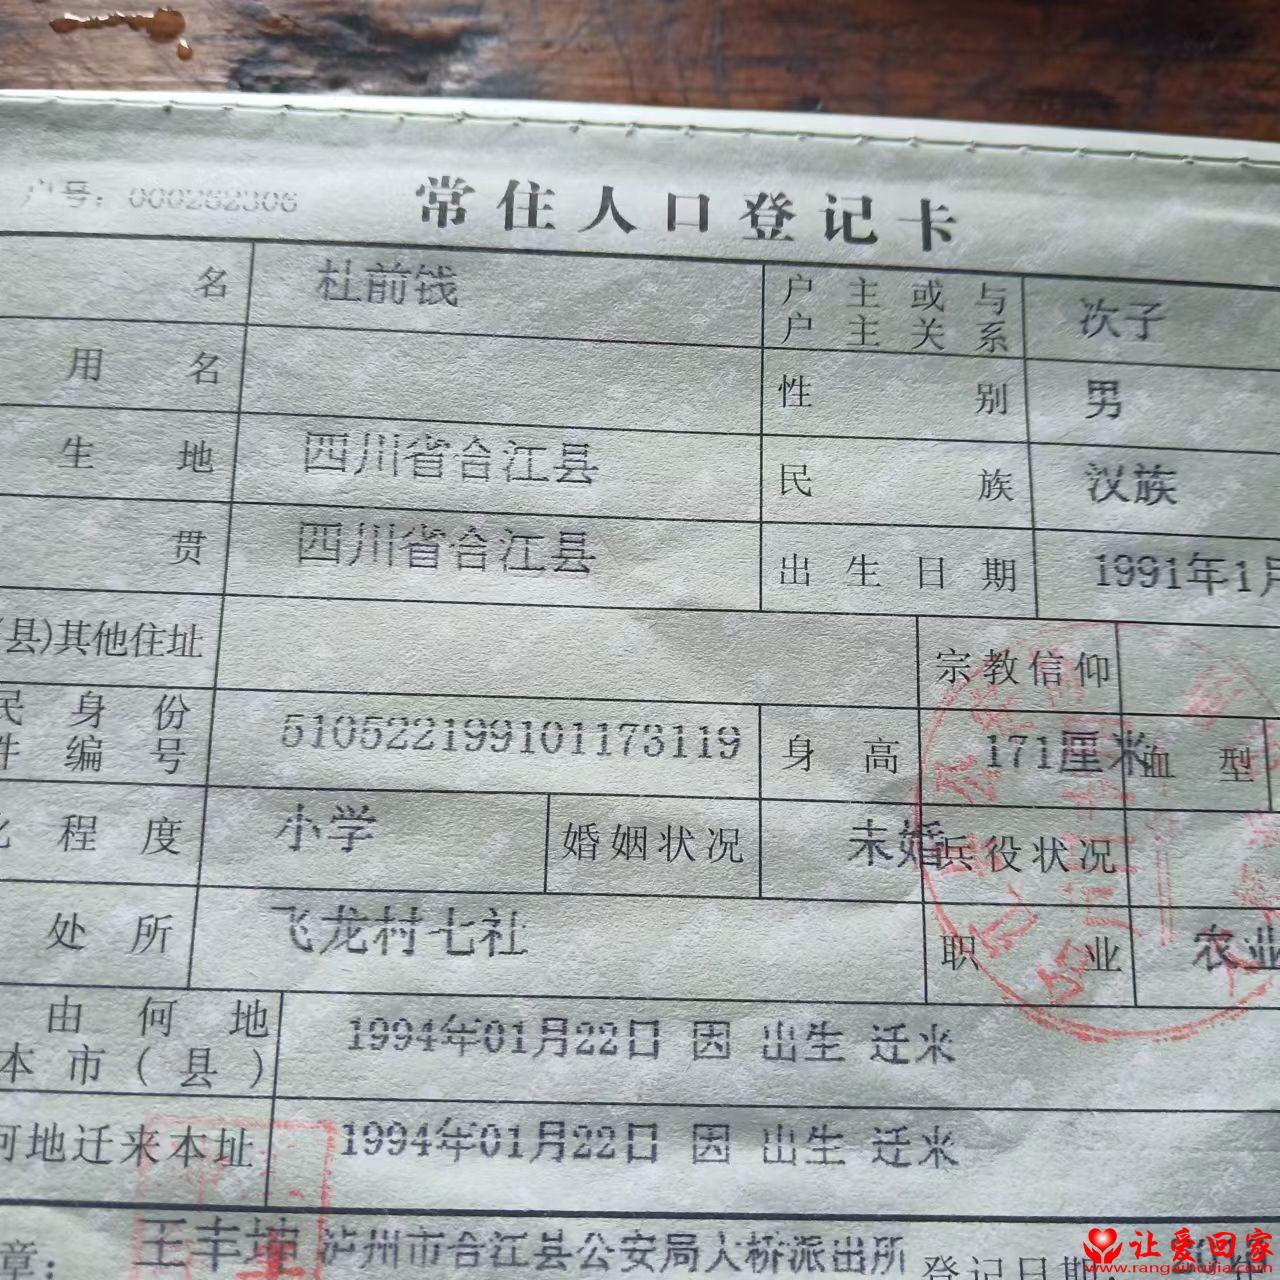 户号: 000262306
常住人口登记卡
名 杜前钱 户主或与户主关系 次子
用名 性别 男
生地 四川省合江县 民族 汉族
贯 四川省合江县 出生日期 1991年1月
(县)其他住址 宗教信仰
民身份件编号 510522199101173119 身高 171厘米 血型
化程度 小学 婚姻状况 未婚 兵役状况
处所 飞龙村七社 职业 农业
由何地本市(县) 1994年01月22日 因 出生 迁来
何地迁来本址 1994年01月22日 因 出生 迁来
章: 王丰坤 泸州市合江县公安局大桥派出所 登记日期:
让爱回家
www.rangaihuijia.com